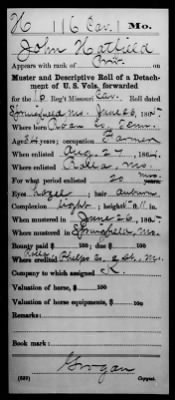 H | 16 Cav. | Mo.
John Hatfield
Appears with rank of Pvt.
Muster and Descriptive Roll of a Detach-
ment of U. S. Vols. forwarded
for the 6 Reg't Missouri Cav. Roll dated
Springfield Mo. June 26, 186
Where born Roan Co Tenn.
Age 34 years; occupation Farmer
When enlisted Aug. 2, 186
Where enlisted Rolla, Mo.
For what period enlisted 20 mos.
Eyes Hazel; hair auburn
Complexion Light; height 5 ft. 11 in.
When mustered in June 26, 186
Where mustered in Springfield, Mo.
Bounty paid $ 100; due $ 100
Where credited Rolla Phelps Co. Mo.
Company to which assigned K.
Valuation of horse, $ 100
Valuation of horse equipments, $ 100
Remarks:
Book mark:
Grogan
(339) Copyist.